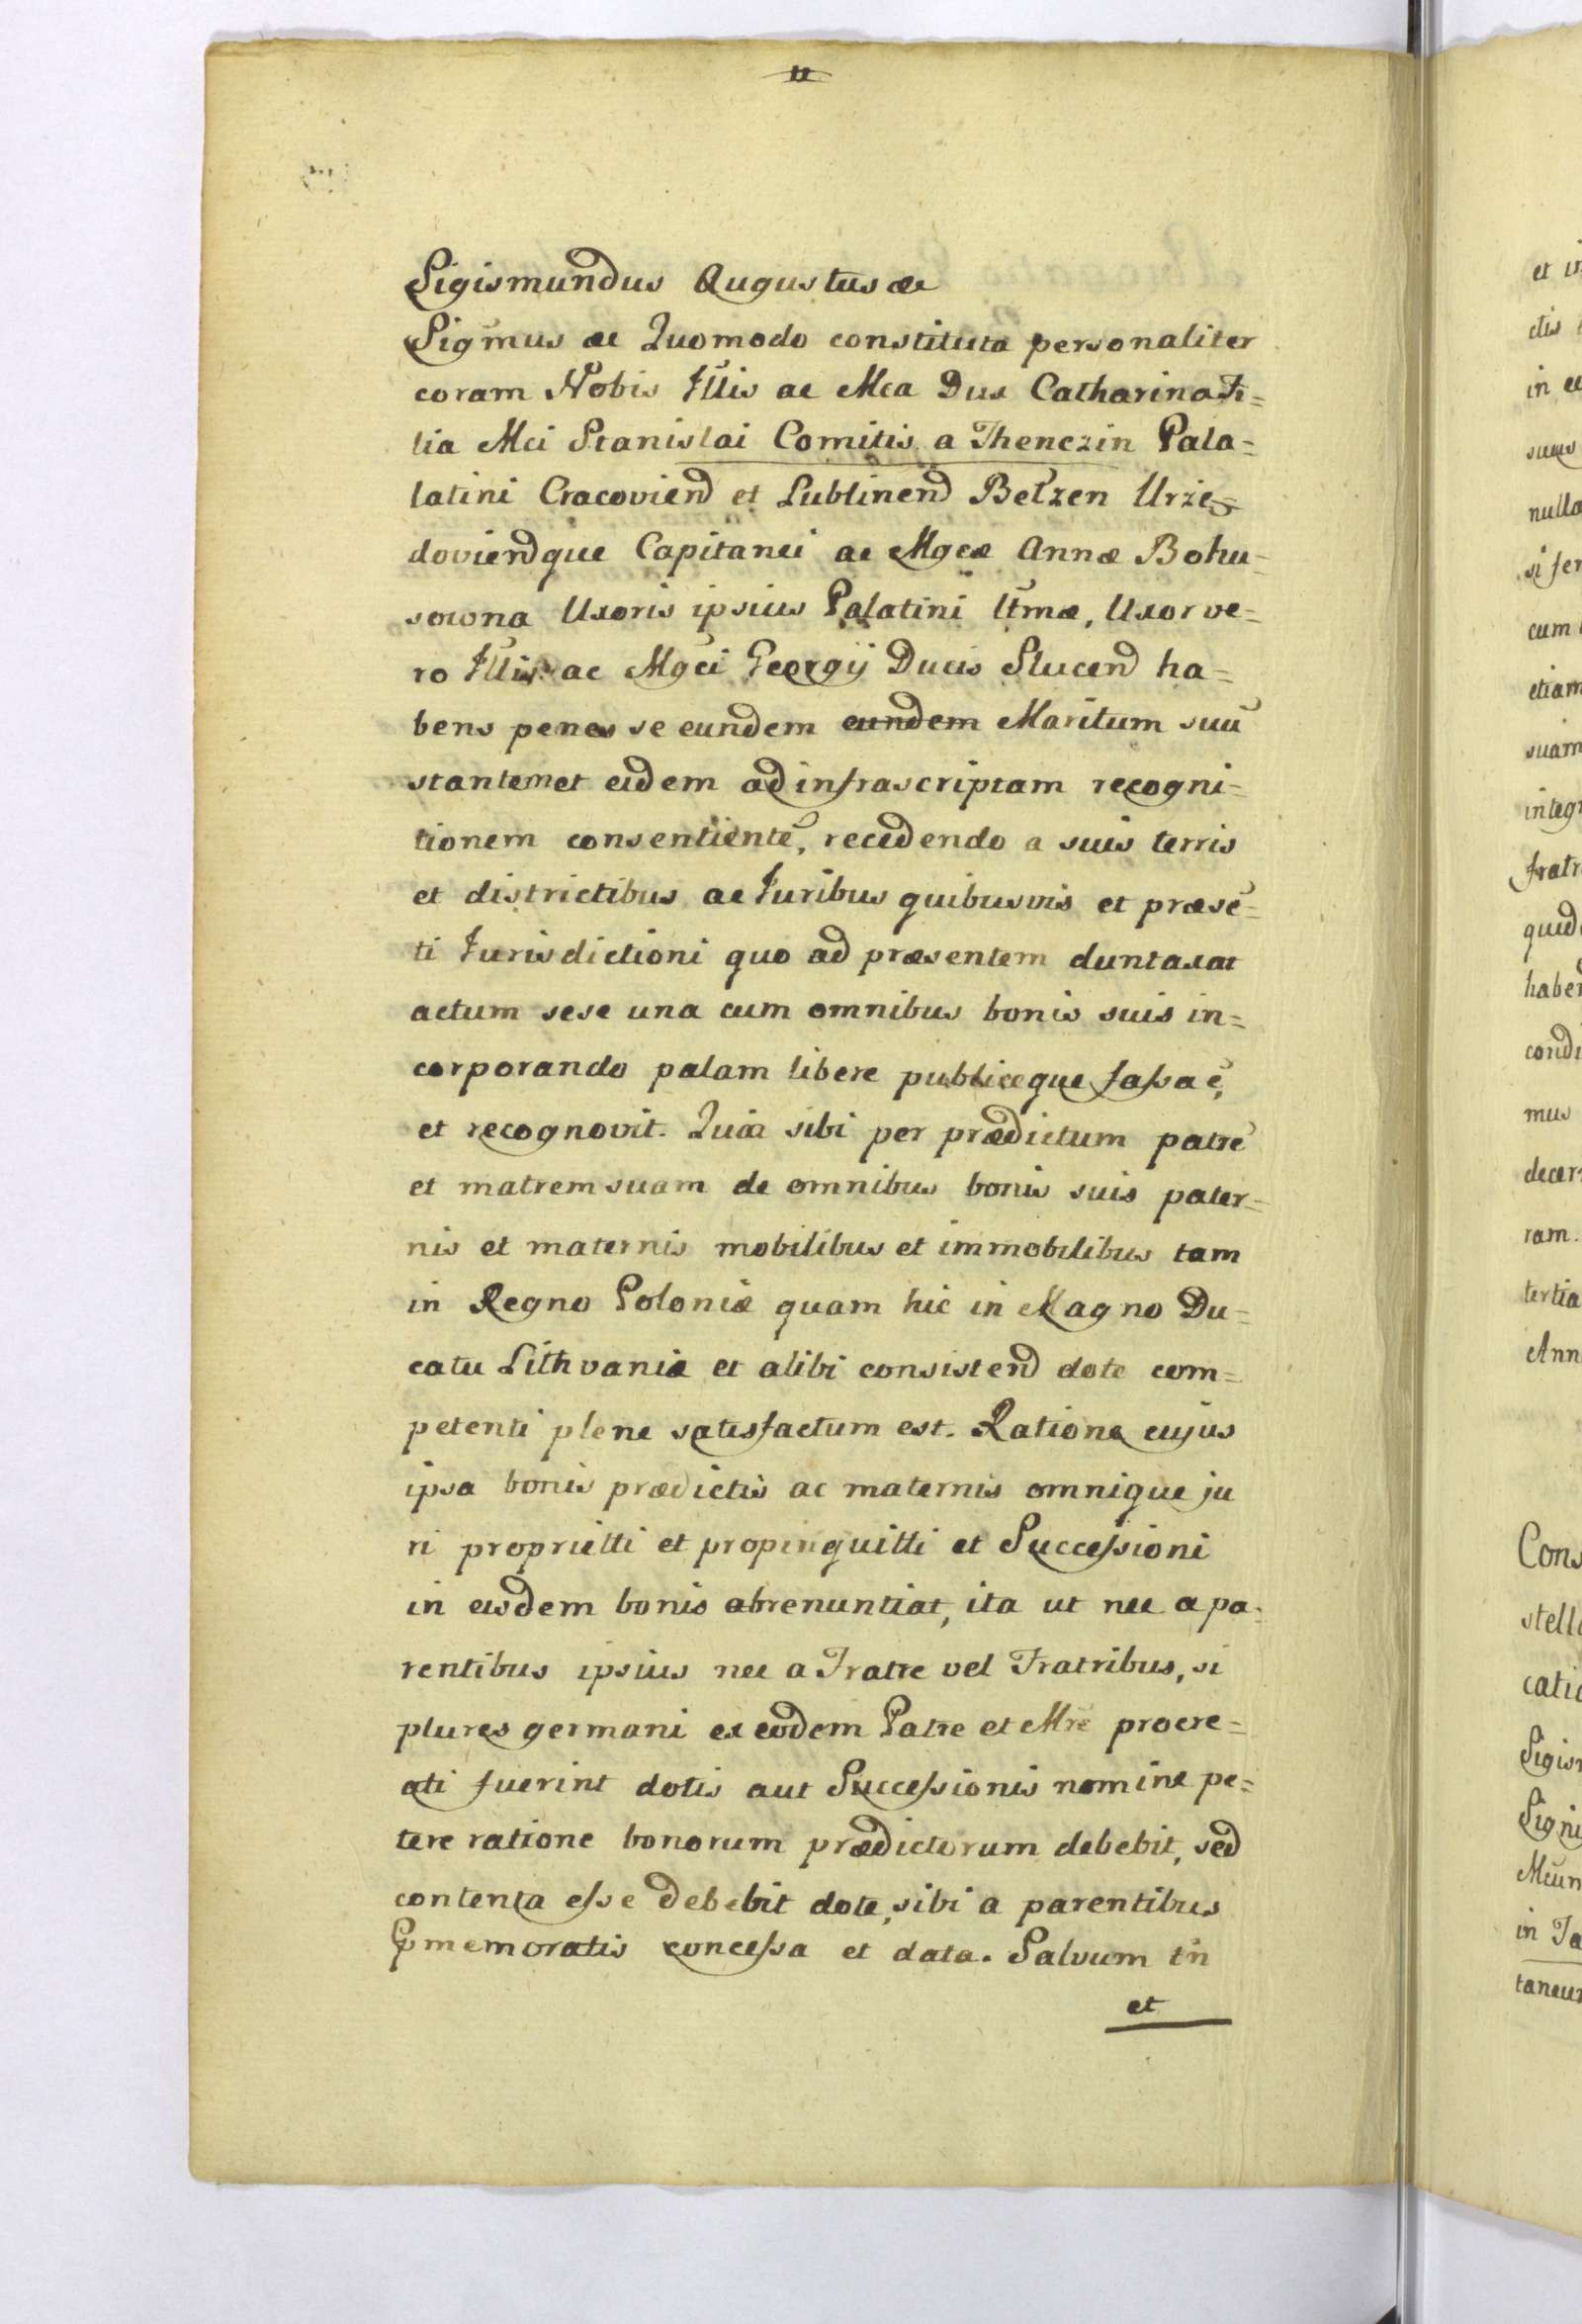 Sigismundus Augustus ac
Sigmus ac Quomodo constituta personaliter
coram Nobis Illis ac Mca Dna Catharina Fi=
lia Mci Stanislai Comitis a Thenczin Pala=
latini Cracoviend et Lublinend Belzen Urze=
doviendque Capitanei ac Mgcæ Annæ Bohu=
sowna Uxoris ipsius Palatini Ltmæ, Uxor ve=
ro Illis ac Mgci Georgij Ducis Slucend ha=
bens penes se eundem eundem Maritum suū
stantem et eidem ad infrascriptam recogni=
tionem consentientē, recedendo a suis terris
et districtibus ac Juribus quibusvis et præsē=
ti Jurisdictioni quo ad præsentem duntaxat
actum sese una cum omnibus bonis suis in=
corporando palam libere publiceque fassa ē,
et recognovit. Quia sibi per prædictum patrē
et matrem suam de omnibus bonis suis pater=
nis et maternis mobilibus et immobilibus tam
in Regno Poloniæ quam hic in Magno Du=
catu Lithvaniæ et alibi consistend dote com=
petenti plene satisfactum est. Ratione cujus
ipsa bonis prædictis ac maternis omnique ju
ri proprietti et propinquitti et Successioni
in eisdem bonis abrenuntiat, ita ut nec a pa=
rentibus ipsius nec a Fratre vel Fratribus, si
plures germani ex eodem Patre et Mrē procre=
ati fuerint dotis aut Successionis nomine pe=
tere ratione bonorum prædictorum debebit, sed
contenta esse debebit dote, sibi a parentibus
memoratis concessa et data. Salvum in
et
et i
ctis
in e
suis
nulla
si fer
cum
etiam
suam
integr
fratr
quid
haber
condi
mus
decer
ram.
tertia
Ann
Cons
stell
catio
Sigis
Sigm
Mcun
in Ta
taneu